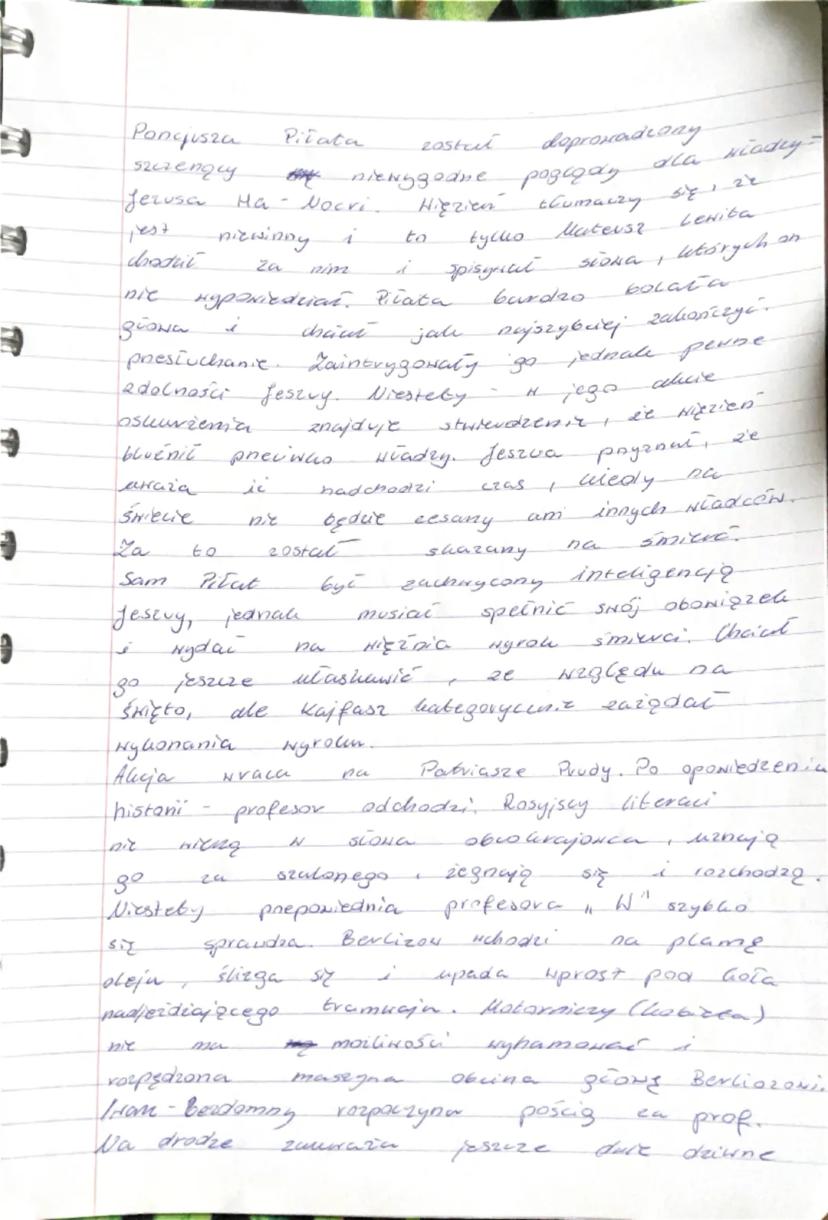 Poncjusza Piłata został doprowadzony
szczerzący niewygodne poglądy dla władzy -
Jezusa Ha-Nocri. Więzień tłumaczy się, że
jest niewinny i to tylko Mateusz Lewita
chodził za nim i spisywał słowa, których on
nie wypowiedział. Piłata bardzo bolała
głowa i chciał jak najszybciej zakończyć
przesłuchanie. Zaintrygowały go jednak pewne
zdolności Jeszuy. Niestety - w jego akcie
oskarżenia znajduje stwierdzenie, że więzień
bluźnił przeciwko władzy. Jeszua przyznał, że
uważa iż nadchodzi czas, kiedy na
świecie nie będzie cesarzy ani innych władców.
Za to został skazany na śmierć.
Sam Piłat był zachwycony inteligencją
Jeszuy, jednak musiał spełnić swój obowiązek
i wydać na więźnia wyrok śmierci. Chciał
go jeszcze ułaskawić, ze względu na
święto, ale Kajfasz kategorycznie zażądał
wykonania wyroku.
Akcja wraca na Patriasze Prudy. Po opowiedzeniu
historii - profesor odchodzi. Rosyjscy literaci
nie wierzą w słowa obcokrajowca, uznają
go za szalonego, żegnają się i rozchodzą.
Niestety przepowiednia profesora „W" szybko
się sprawdza. Berlizow wchodzi na plamę
oleju, ślizga się i upada wprost pod koła
nadjeżdżającego tramwaju. Motorniczy (kobieta)
nie ma możliwości wyhamować i
rozpędzona maszyna obcina głowę Berliozowi.
Iwan-Bezdomny rozpoczyna pościg za prof.
Na drodze zauważa jeszcze dwie dziwne